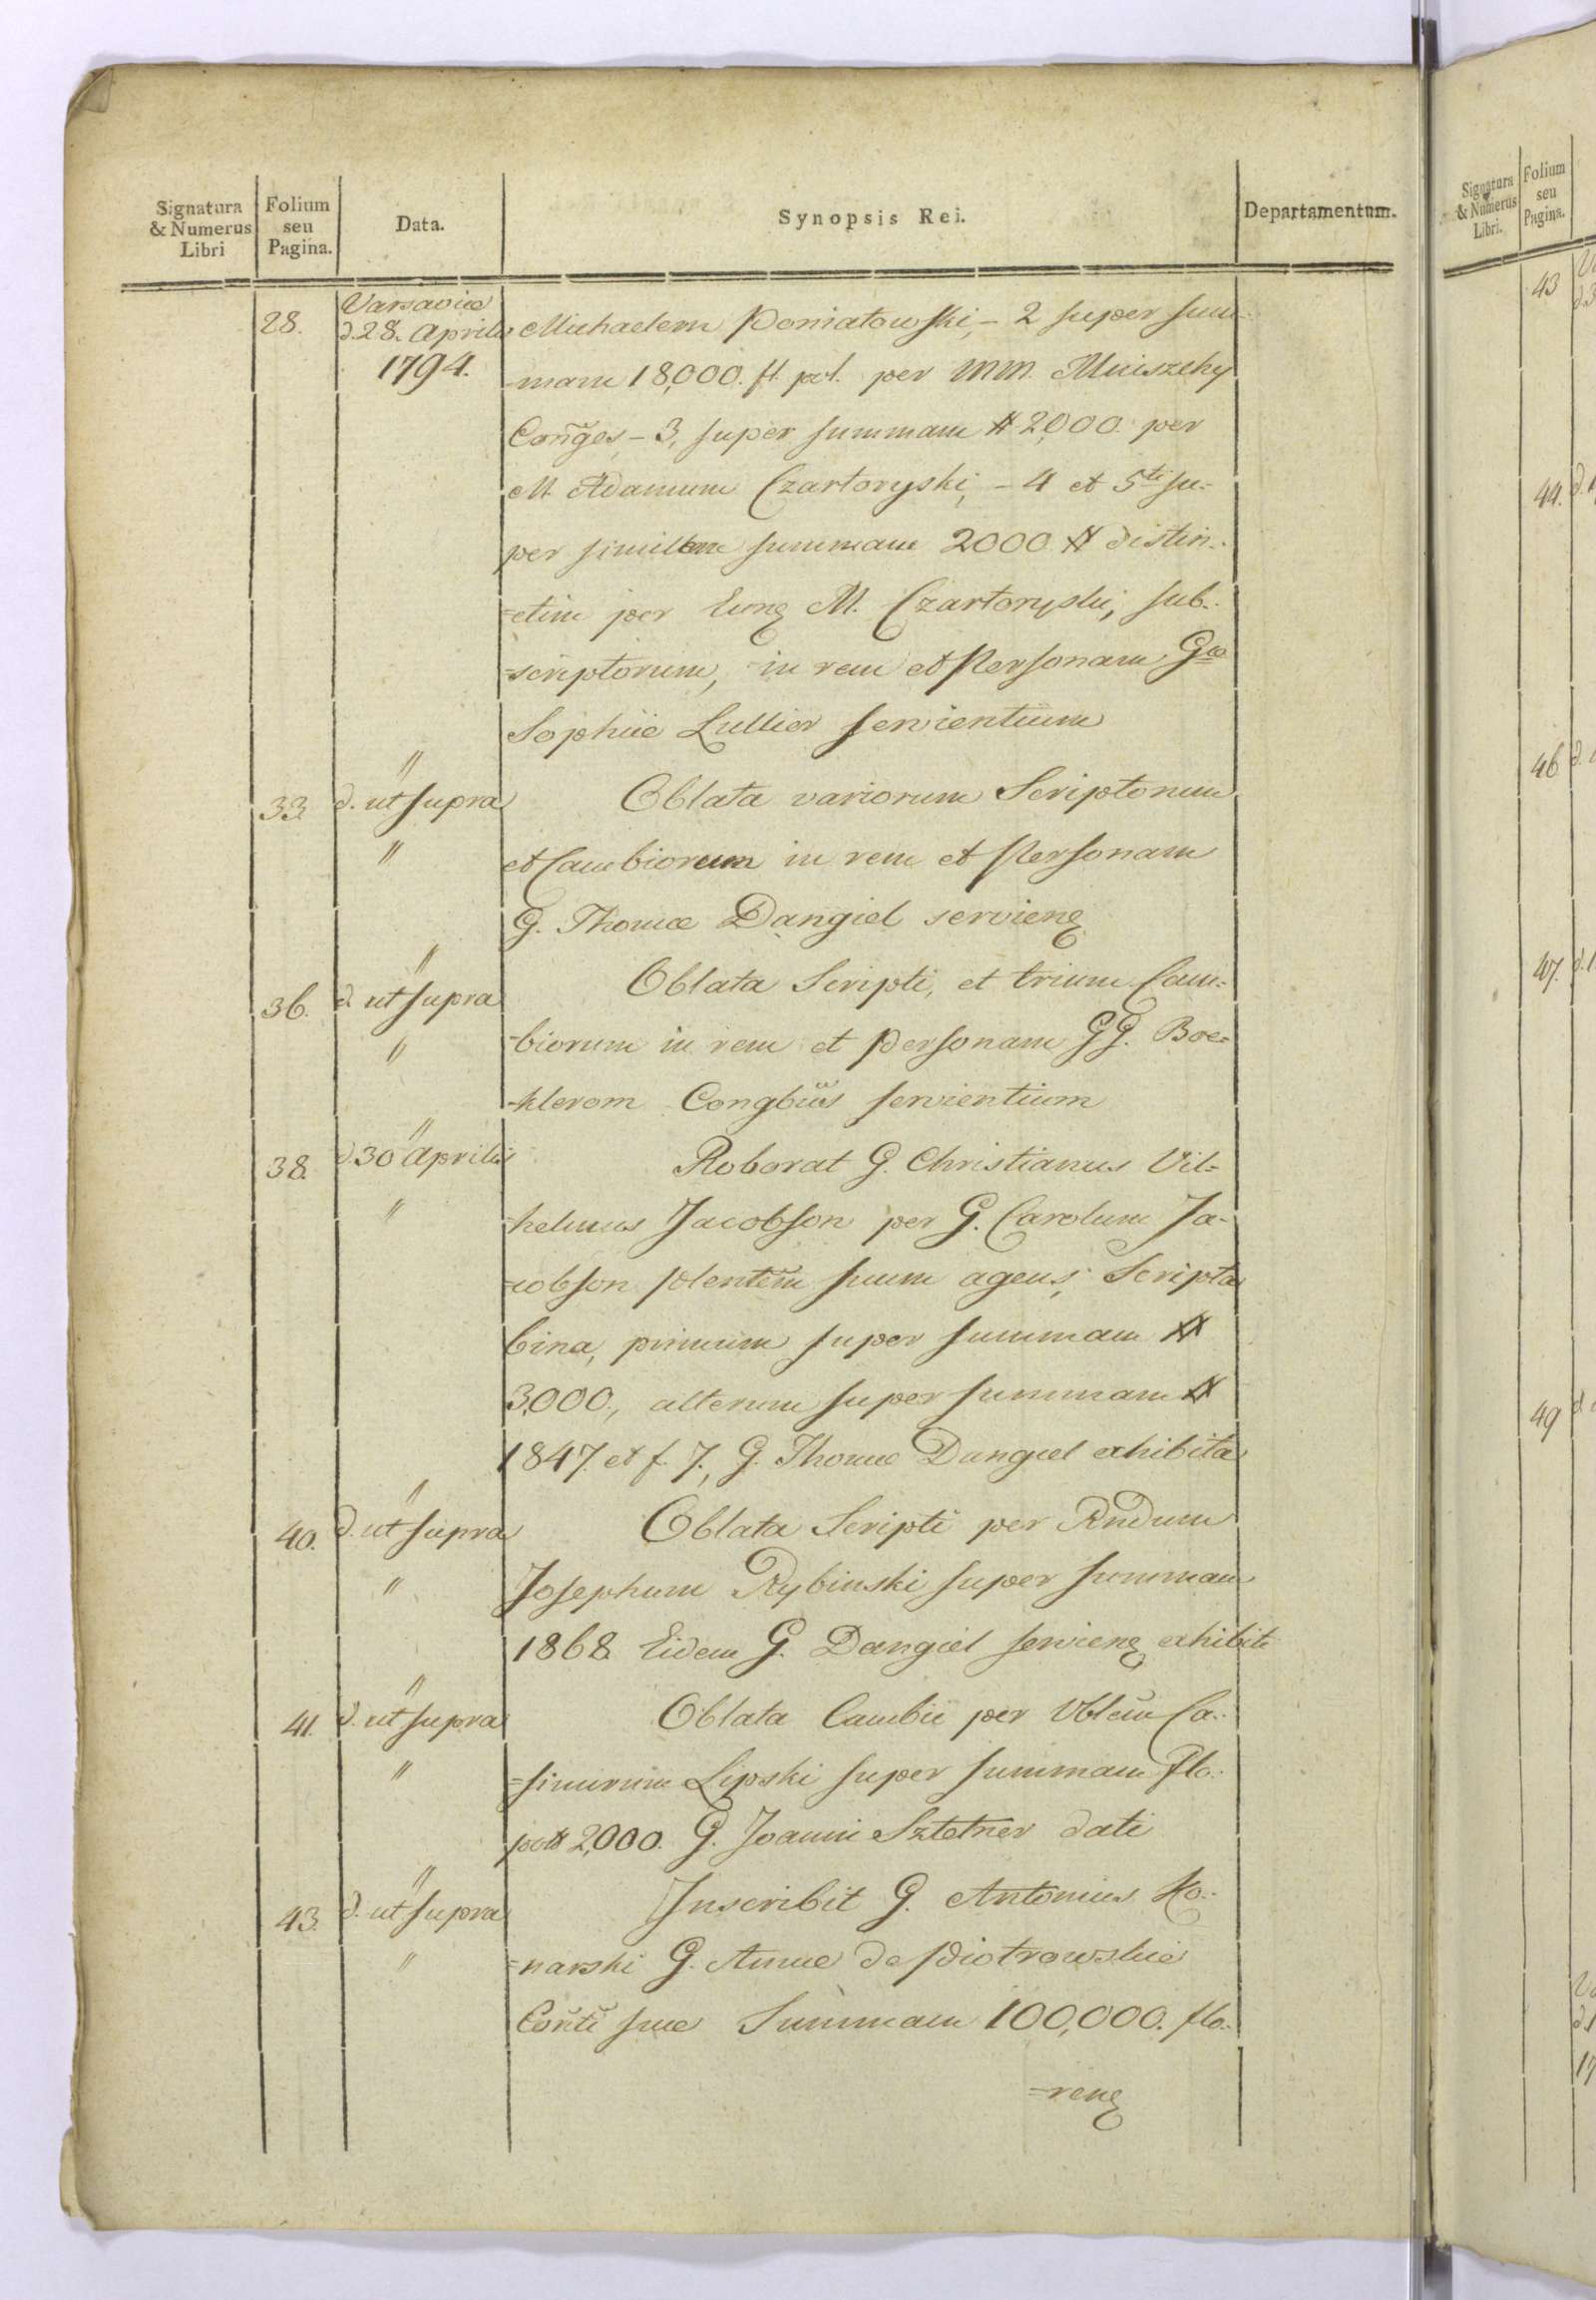 Signatura & Numerus Libri
Folium seu Pagina.
Data.
Synopsis Rei.
Departamentum.
28. Varsaviæ d. 28. Aprilis 1794. Michaelem Poniatowski, – 2 super sum-
-mam 18,000. fl. pol. per MM. Mniszchy
Coñges, – 3, super summam # 2,000. per
M. Adamum Czartoryski, – 4 et 5ti su-
per similem summam 2000 # distin-
-ctim per Eunq M. Czartoryski, sub-
-scriptorum, in rem et Personam Gæ
Sophiæ Lullier servientium
33. " d. ut supra " Oblata variorum Scriptorum
et Cambiorum in rem et Personam
G. Thomæ Dangiel servienq
36. " d. ut supra " Oblata Scripti, et trium Cam-
-biorum in rem et Personam GG. Boe-
-klerom Congbus servientium
38. " d. 30 Aprilis " Roborat G. Christianus Vil-
-helmus Jacobson per G. Carolum Ja-
-cobson plentem suum agens, Scripta
bina, primum super summam #
3,000., alterum super summam #
1847. et f. 7., G. Thomæ Dangiel exhibita
40. " d. ut supra " Oblata Scripti per Rndum
Josephum Rybinski super summam
1868. Eidem G. Dangiel servienq exhibiti
41. " d. ut supra " Oblata Cambii per Vblem Ca-
-simirum Lipski super summam flo-
2,000. G. Joanni Sztetner dati
43. " d. ut supra " Inscribit G. Antonius Ko-
-narski G. Annæ de Piotrowskie
Conti suæ Summam 100,000. flo-
-renq
Signatura & Numerus Libri.
Folium seu Pagina.
43
44.
46
47.
49